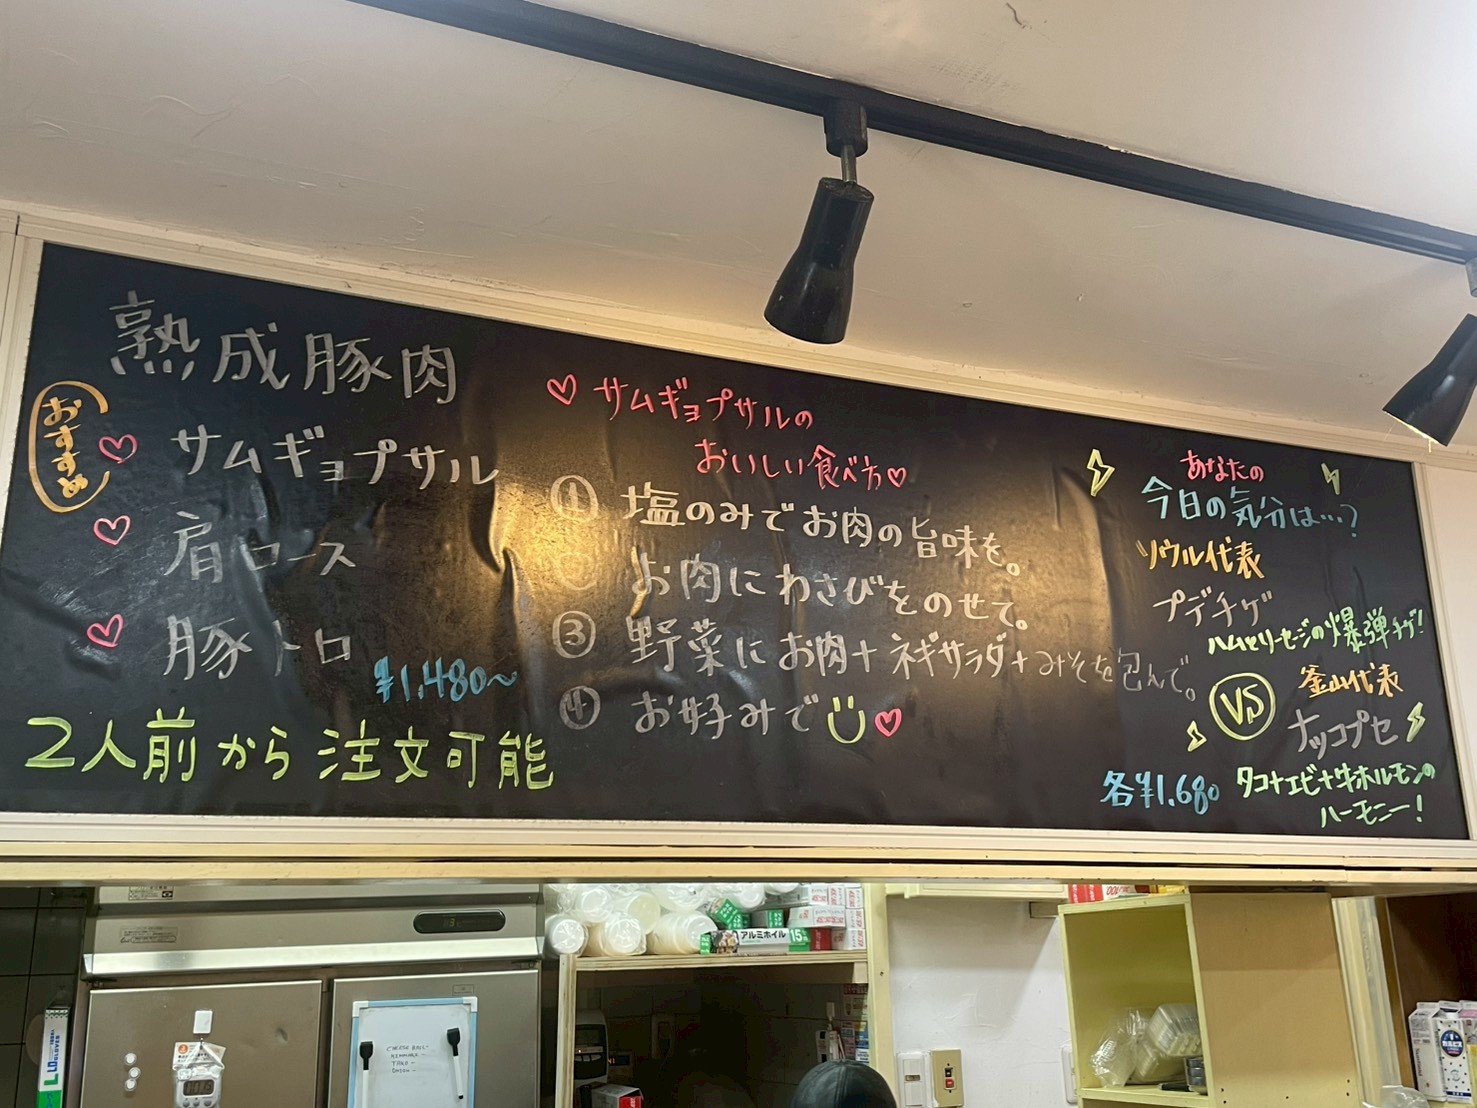 熟成豚肉
おすすめ
♡ サムギョプサル
♡ 肩ロース
♡ 豚トロ
¥1,480〜
2人前から注文可能
♡ サムギョプサルの
おいしい食べ方♡
① 塩のみでお肉の旨味を。
お肉にわさびをのせて。
③ 野菜にお肉+ネギサラダ+みそを包んで。
④ お好みで
あなたの
今日の気分は…?
ソウル代表
プデチゲ
ハムとソーセージの爆弾チゲ!
VS
釜山代表
ナッコプセ
タコ+エビ+牛ホルモンの
ハーモニー!
各¥1,680
アルミホイル 15